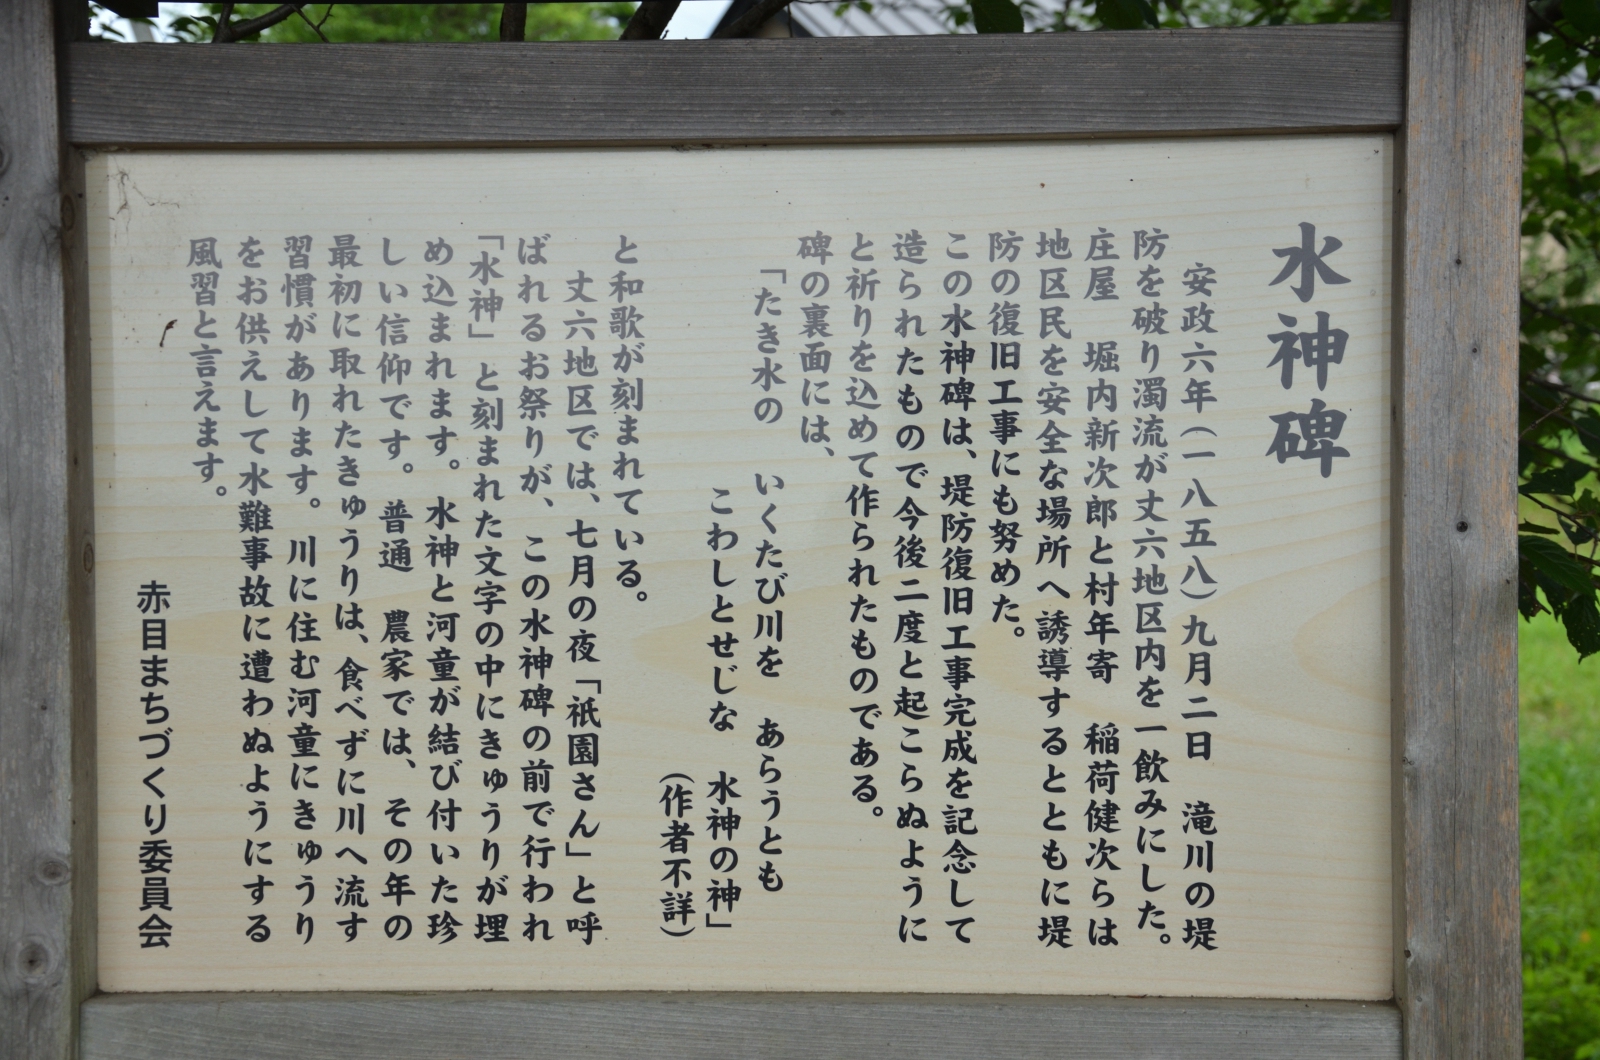 水神碑
安政六年（一八五八）九月二日　滝川の堤
防を破り濁流が丈六地区内を一飲みにした。
庄屋　堀内新次郎と村年寄　稲荷健次らは
地区民を安全な場所へ誘導するとともに堤
防の復旧工事にも努めた。
この水神碑は、堤防復旧工事完成を記念して
造られたもので今後二度と起こらぬように
と祈りを込めて作られたものである。
碑の裏面には、
「たき水の　いくたび川を　あらうとも
こわしとせじな　水神の神」
（作者不詳）
と和歌が刻まれている。
丈六地区では、七月の夜「祇園さん」と呼
ばれるお祭りが、この水神碑の前で行われ
「水神」と刻まれた文字の中にきゅうりが埋
め込まれます。水神と河童が結び付いた珍
しい信仰です。普通　農家では、その年の
最初に取れたきゅうりは、食べずに川へ流す
習慣があります。川に住む河童にきゅうり
をお供えして水難事故に遭わぬようにする
風習と言えます。
赤目まちづくり委員会